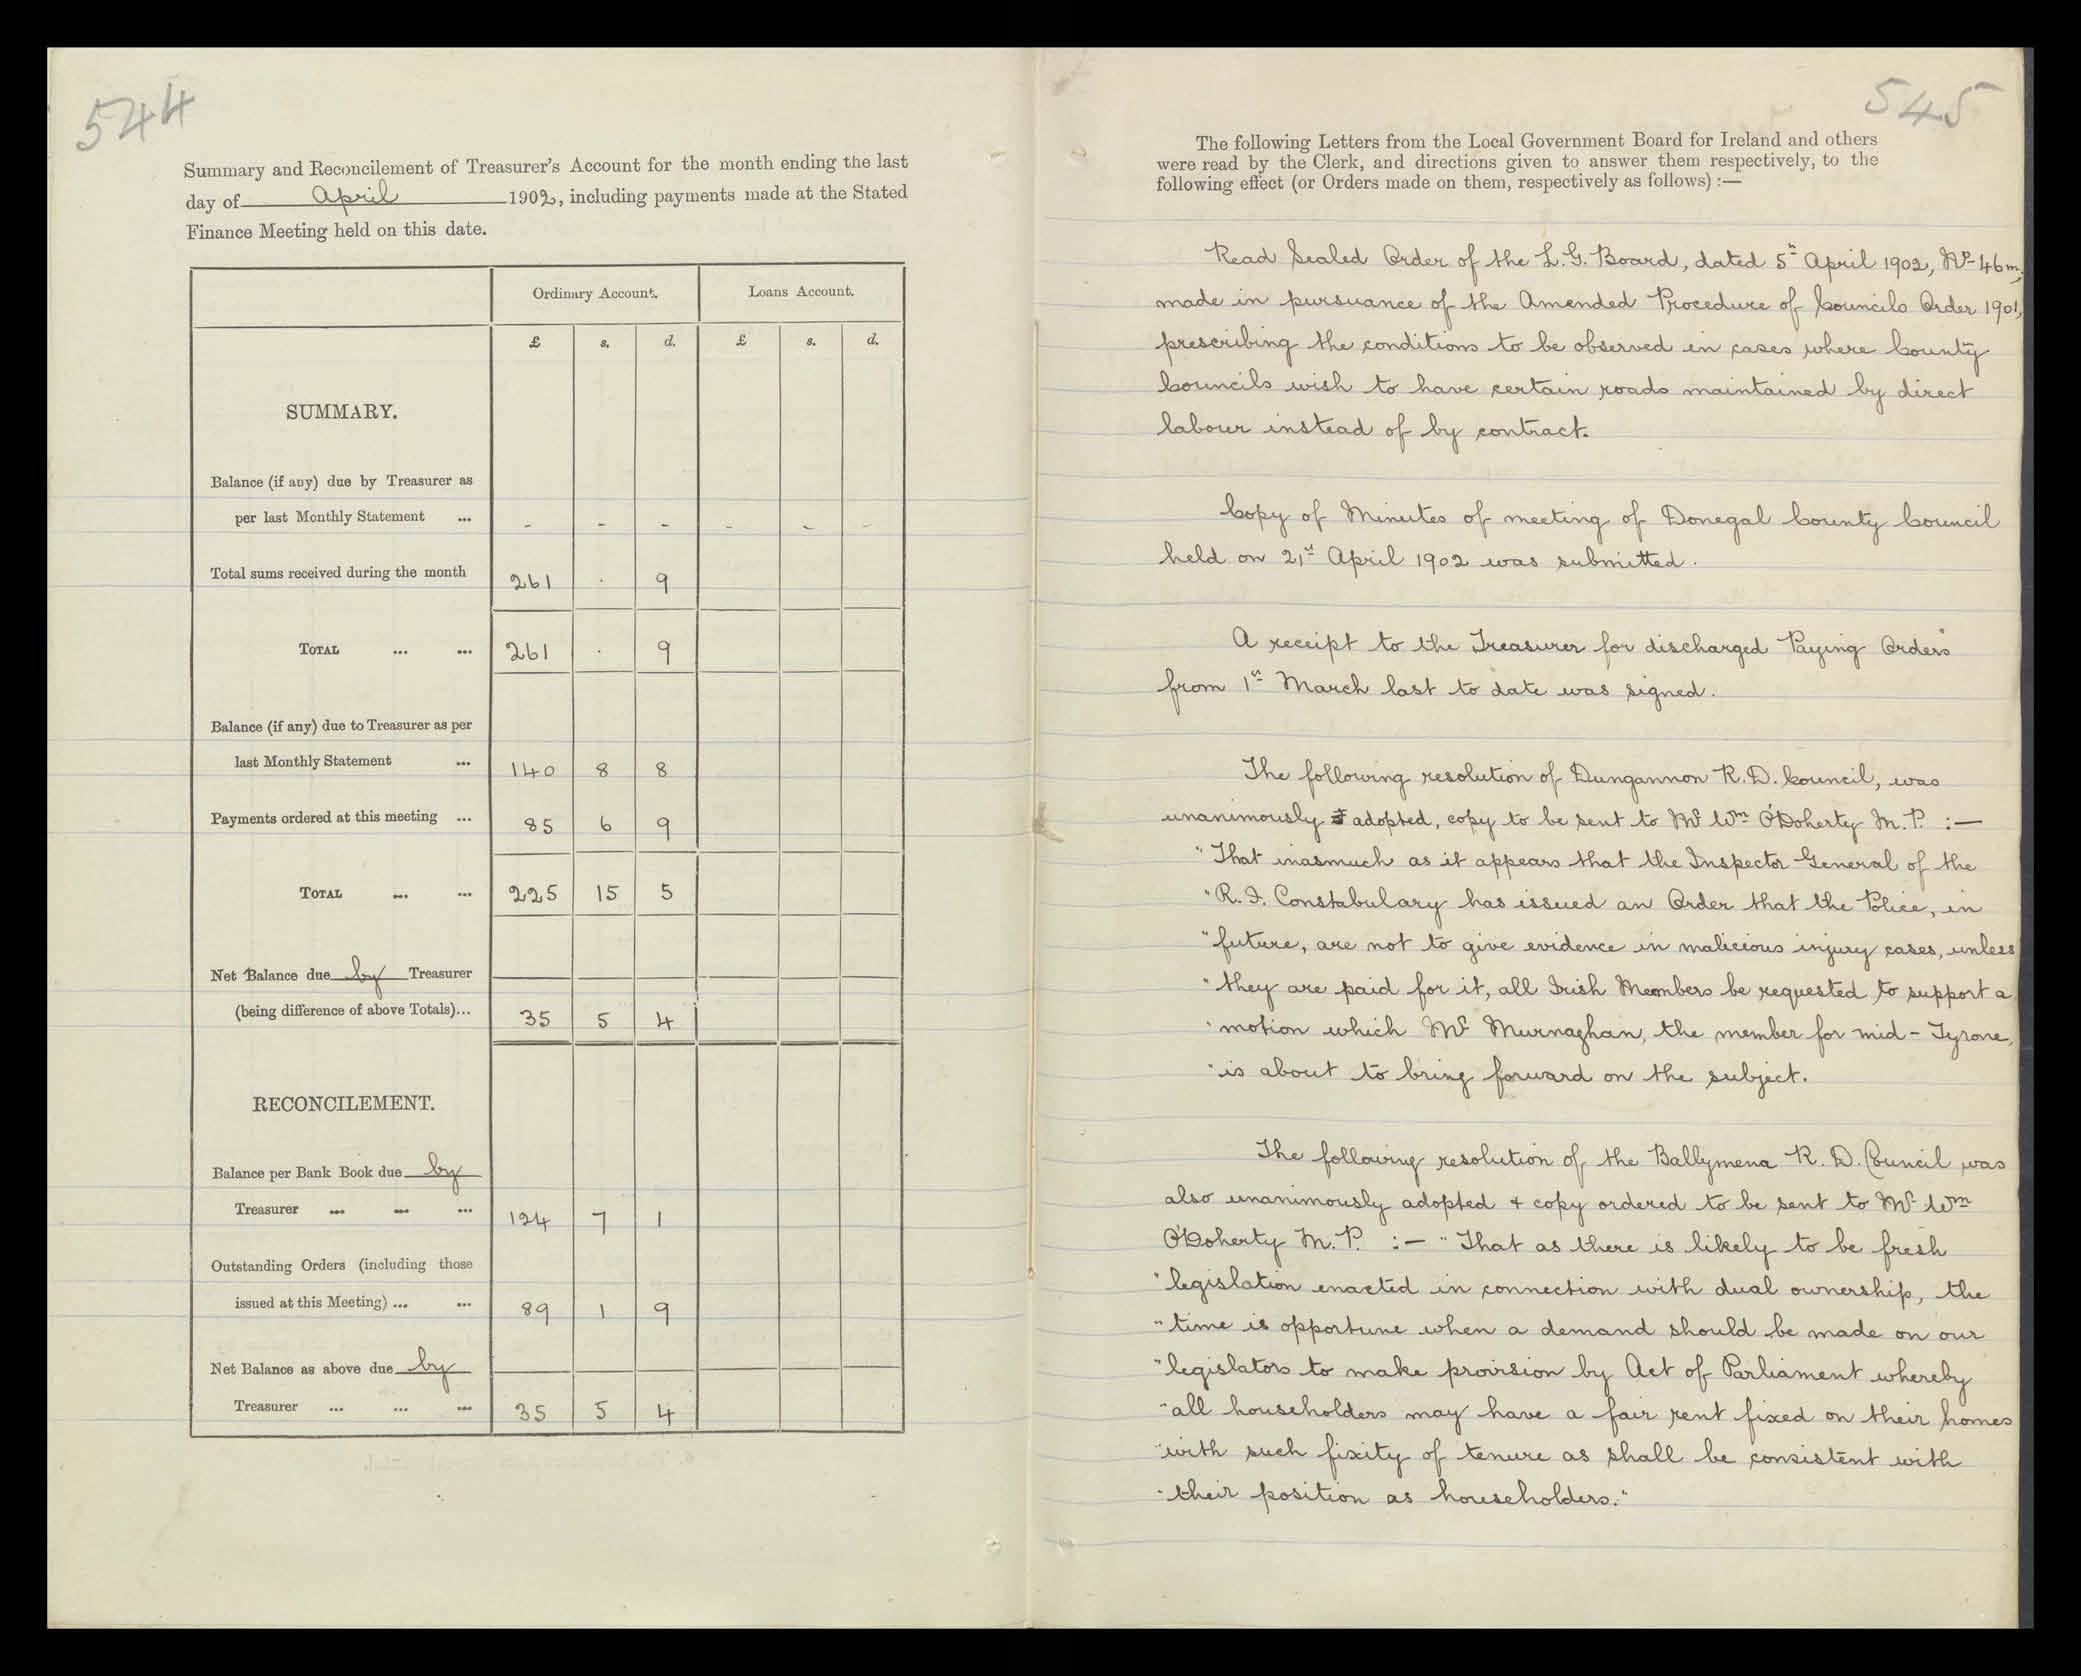 544
Summary and Reconcilement of Treasurer's Account for the month ending the last
day of April 1902, including payments made at the Stated
Finance Meeting held on this date.
Ordinary Account. Loans Account.
£ s. d. £ s. d.
SUMMARY.
Balance (if any) due by Treasurer as
per last Monthly Statement ... - - - - - -
Total sums received during the month 261 . 9
TOTAL ... ... 261 . 9
Balance (if any) due to Treasurer as per
last Monthly Statement ... 140 8 8
Payments ordered at this meeting ... 85 6 9
TOTAL ... ... 225 15 5
Net Balance due by Treasurer
(being difference of above Totals)... 35 5 4
RECONCILEMENT.
Balance per Bank Book due by
Treasurer ... ... ... 124 7 1
Outstanding Orders (including those
issued at this Meeting) ... ... 89 1 9
Net Balance as above due by
Treasurer ... ... ... 35 5 4
545
The following Letters from the Local Government Board for Ireland and others
were read by the Clerk, and directions given to answer them respectively, to the
following effect (or Orders made on them, respectively as follows) :—
Read Sealed Order of the L.G. Board, dated 5th April 1902, No 46m,
made in pursuance of the Amended Procedure of Councils Order 1901,
prescribing the conditions to be observed in cases where County
Councils wish to have certain roads maintained by direct
labour instead of by contract.
Copy of Minutes of meeting of Donegal County Council
held on 21st April 1902 was submitted.
A receipt to the Treasurer for discharged Paying Orders
from 1st March last to date was signed.
The following resolution of Dungannon R.D. Council, was
unanimously adopted, copy to be sent to Mr Wm O'Doherty M.P. :—
"That inasmuch as it appears that the Inspector General of the
"R.I. Constabulary has issued an Order that the Police, in
"future, are not to give evidence in malicious injury cases, unless
"they are paid for it, all Irish Members be requested to support a
"motion which Mr Murnaghan, the member for mid-Tyrone,
"is about to bring forward on the subject.
The following resolution of the Ballymena R.D. Council was
also unanimously adopted & copy ordered to be sent to Mr Wm
O'Doherty M.P. :— "That as there is likely to be fresh
"legislation enacted in connection with dual ownership, the
"time is opportune when a demand should be made on our
"legislators to make provision by Act of Parliament whereby
"all householders may have a fair rent fixed on their homes
"with such fixity of tenure as shall be consistent with
"their position as householders."